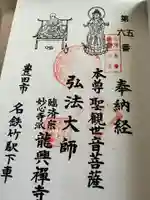 第六五番
奉納経
本尊 聖観世音菩薩
弘法大師
臨済宗
妙心寺派 龍興禅寺
豊田市
名鉄竹駅下車